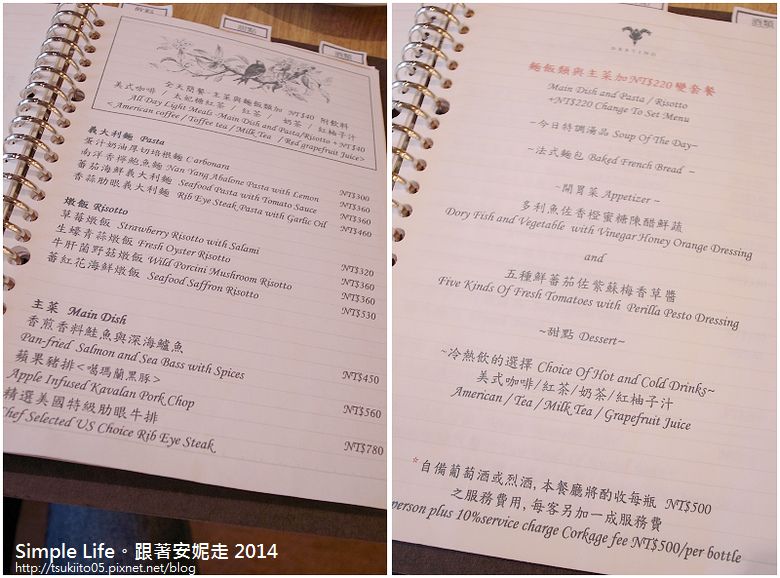 甜點
酒類
全天簡餐-主菜與麵飯類加 NT$40 附飲料
美式咖啡 / 太妃糖紅茶 / 紅茶 / 奶茶 / 紅柚子汁
All Day Light Meals -Main Dish and Pasta/Risotto +NT$40
<American coffee / Toffee tea / Milk Tea / Red grapefruit Juice>
義大利麵 Pasta
蛋汁奶油厚切培根麵 Carbonara NT$300
南洋香檸鮑魚麵 Nan Yang Abalone Pasta with Lemon NT$360
蕃茄海鮮義大利麵 Seafood Pasta with Tomato Sauce NT$360
香蒜肋眼義大利麵 Rib Eye Steak Pasta with Garlic Oil NT$460
燉飯 Risotto
草莓燉飯 Strawberry Risotto with Salami NT$320
生蠔青蒜燉飯 Fresh Oyster Risotto NT$360
牛肝菌野菇燉飯 Wild Porcini Mushroom Risotto NT$360
蕃紅花海鮮燉飯 Seafood Saffron Risotto NT$530
主菜 Main Dish
香煎香料鮭魚與深海鱸魚
Pan-fried Salmon and Sea Bass with Spices NT$450
蘋果豬排<噶瑪蘭黑豚>
Apple Infused Kavalan Pork Chop NT$560
精選美國特級肋眼牛排
Chef Selected US Choice Rib Eye Steak NT$780
酒類
麵飯類與主菜加NT$220變套餐
Main Dish and Pasta / Risotto
+NT$220 Change To Set Menu
~今日特調湯品 Soup Of The Day~
~法式麵包 Baked French Bread ~
~開胃菜 Appetizer ~
多利魚佐香橙蜜糖陳醋鮮蔬
Dory Fish and Vegetable with Vinegar Honey Orange Dressing
and
五種鮮蕃茄佐紫蘇梅香草醬
Five Kinds Of Fresh Tomatoes with Perilla Pesto Dressing
~甜點 Dessert~
~冷熱飲的選擇 Choice Of Hot and Cold Drinks~
美式咖啡/紅茶/奶茶/紅柚子汁
American / Tea / Milk Tea / Grapefruit Juice
☆自備葡萄酒或烈酒,本餐廳將酌收每瓶 NT$500
之服務費用,每客另加一成服務費
person plus 10%service charge Corkage fee NT$500/per bottle
Simple Life。跟著安妮走 2014
http://tsukiito05.pixnet.net/blog